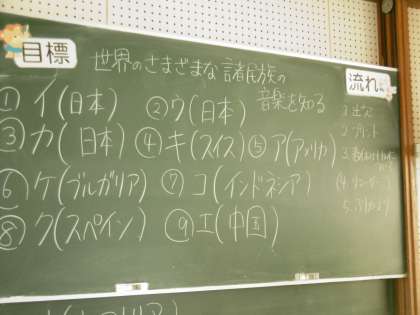 目標
世界のさまざまな諸民族の
音楽を知る
① イ(日本) ②ウ(日本)
③カ(日本) ④キ(スイス) ⑤ア(アメリカ)
⑥ケ(ブルガリア) ⑦コ(インドネシア)
⑧ク(スペイン) ⑨エ(中国)
流れ
1.出欠
2.プリント